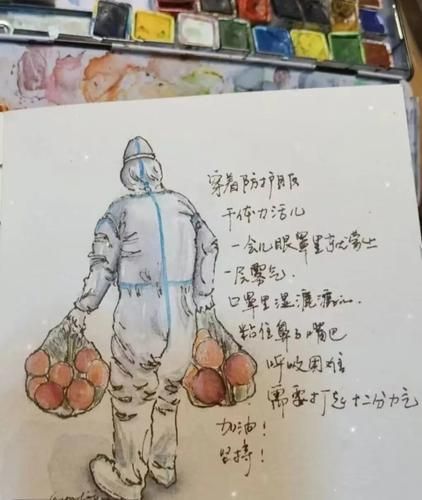 穿着防护服
干体力活儿
一会儿眼罩里就蒙上
一层雾气.
口罩里湿漉漉的.
粘住鼻子嘴巴
呼吸困难
需要打起十二分力气
加油!
坚持!